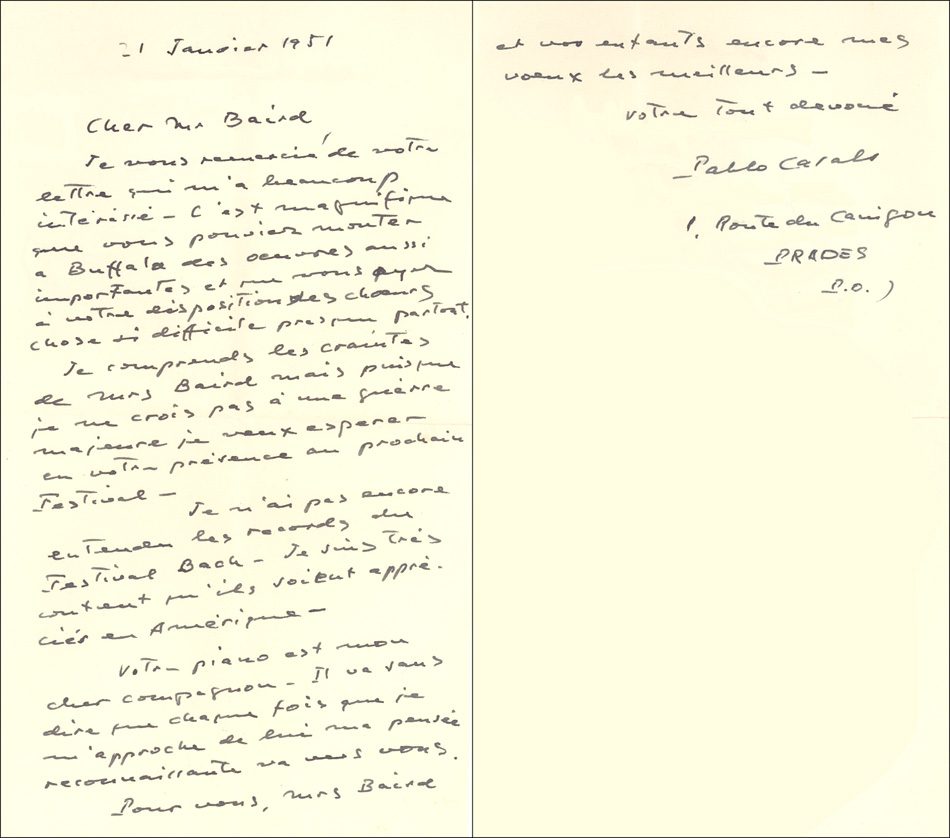 21 Janvier 1951
Cher Mr Baird
Je vous remercie de votre
lettre qui m'a beaucoup
intéréssé - C'est magnifique
que vous pouviez monter
a Buffalo des oeuvres aussi
importantes et que vous ayez
à votre disposition des choeurs
chose si difficile presque partout.
Je comprends les craintes
de Mrs Baird mais puisque
je ne crois pas à une guerre
majeure je veux esperer
en votre présence au prochain
Festival -
Je n'ai pas encore
entendu les records du
Festival Bach - Je suis très
content qu'ils soient appré-
ciés en Amérique -
Votre piano est mon
cher compagnon - Il va sans
dire que chaque fois que je
m'approche de lui ma pensée
reconnaissante va vers vous.
Pour vous, Mrs Baird
et vos enfants encore mes
voeux les meilleurs -
votre tout devoué
Pablo Casals
1, Route du Canigou
PRADES
P.O. )